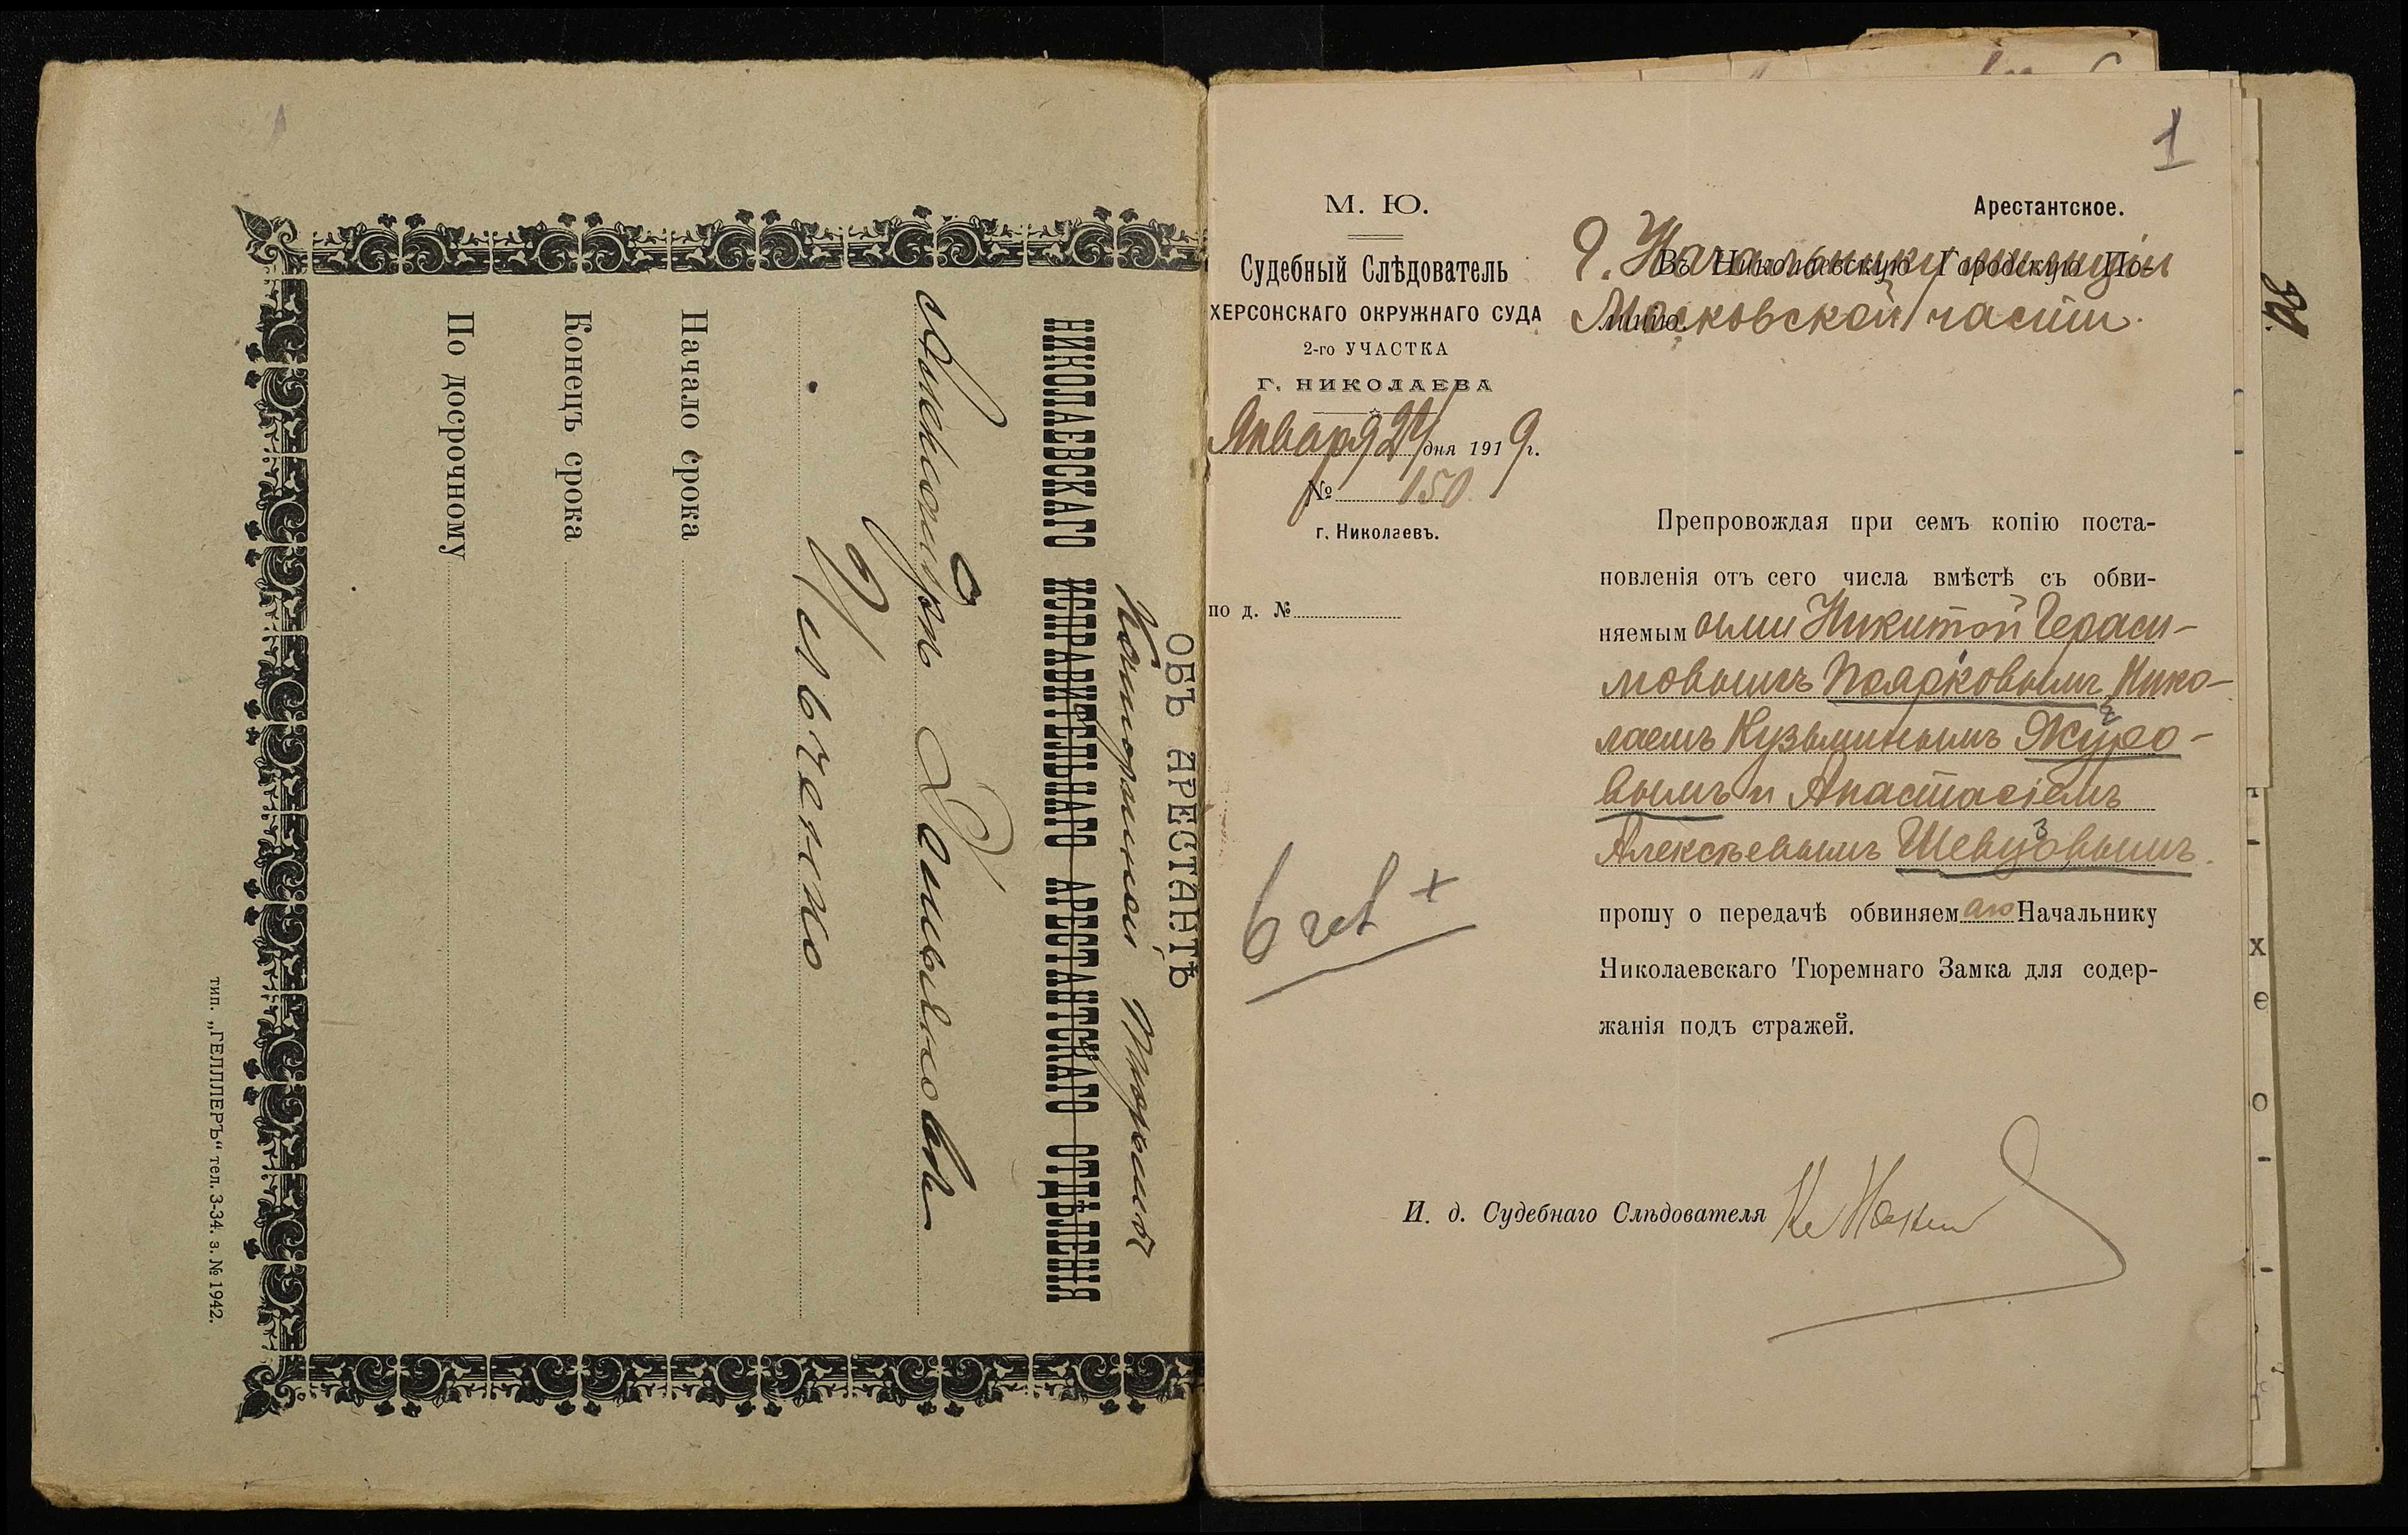 ОБЪ АРЕСТАНТѢ
Каторжной тюрьмы
НИКОЛАЕВСКАГО ИСПРАВИТЕЛЬНАГО АРЕСТАНТСКАГО ОТДѢЛЕНІЯ
Александръ
Ильченко
Начало срока
Конецъ срока
По досрочному
тип. „ГЕЛЛЕРЪ“ тел. 3-34. з. № 1942.
1
М. Ю.
Судебный Слѣдователь
ХЕРСОНСКАГО ОКРУЖНАГО СУДА
2-го УЧАСТКА
Г. НИКОЛАЕВА
Января 24 дня 1919 г.
№ 150
г. Николаевъ.
по д. №
Арестантское.
Г. Начальнику милиціи
Въ Николаевскую Городскую По-
Московской части.
лицію.
Препровождая при семъ копію поста-
новленія отъ сего числа вмѣстѣ съ обви-
няемыми Никитой Гераси-
мовымъ Поярковымъ, Нико-
лаемъ Кузьминымъ Жуко-
вымъ и Анастасіемъ
Алексѣевымъ Шевцовымъ.
прошу о передачѣ обвиняемаго Начальнику
Николаевскаго Тюремнаго Замка для содер-
жанія подъ стражей.
И. д. Судебнаго Слѣдователя